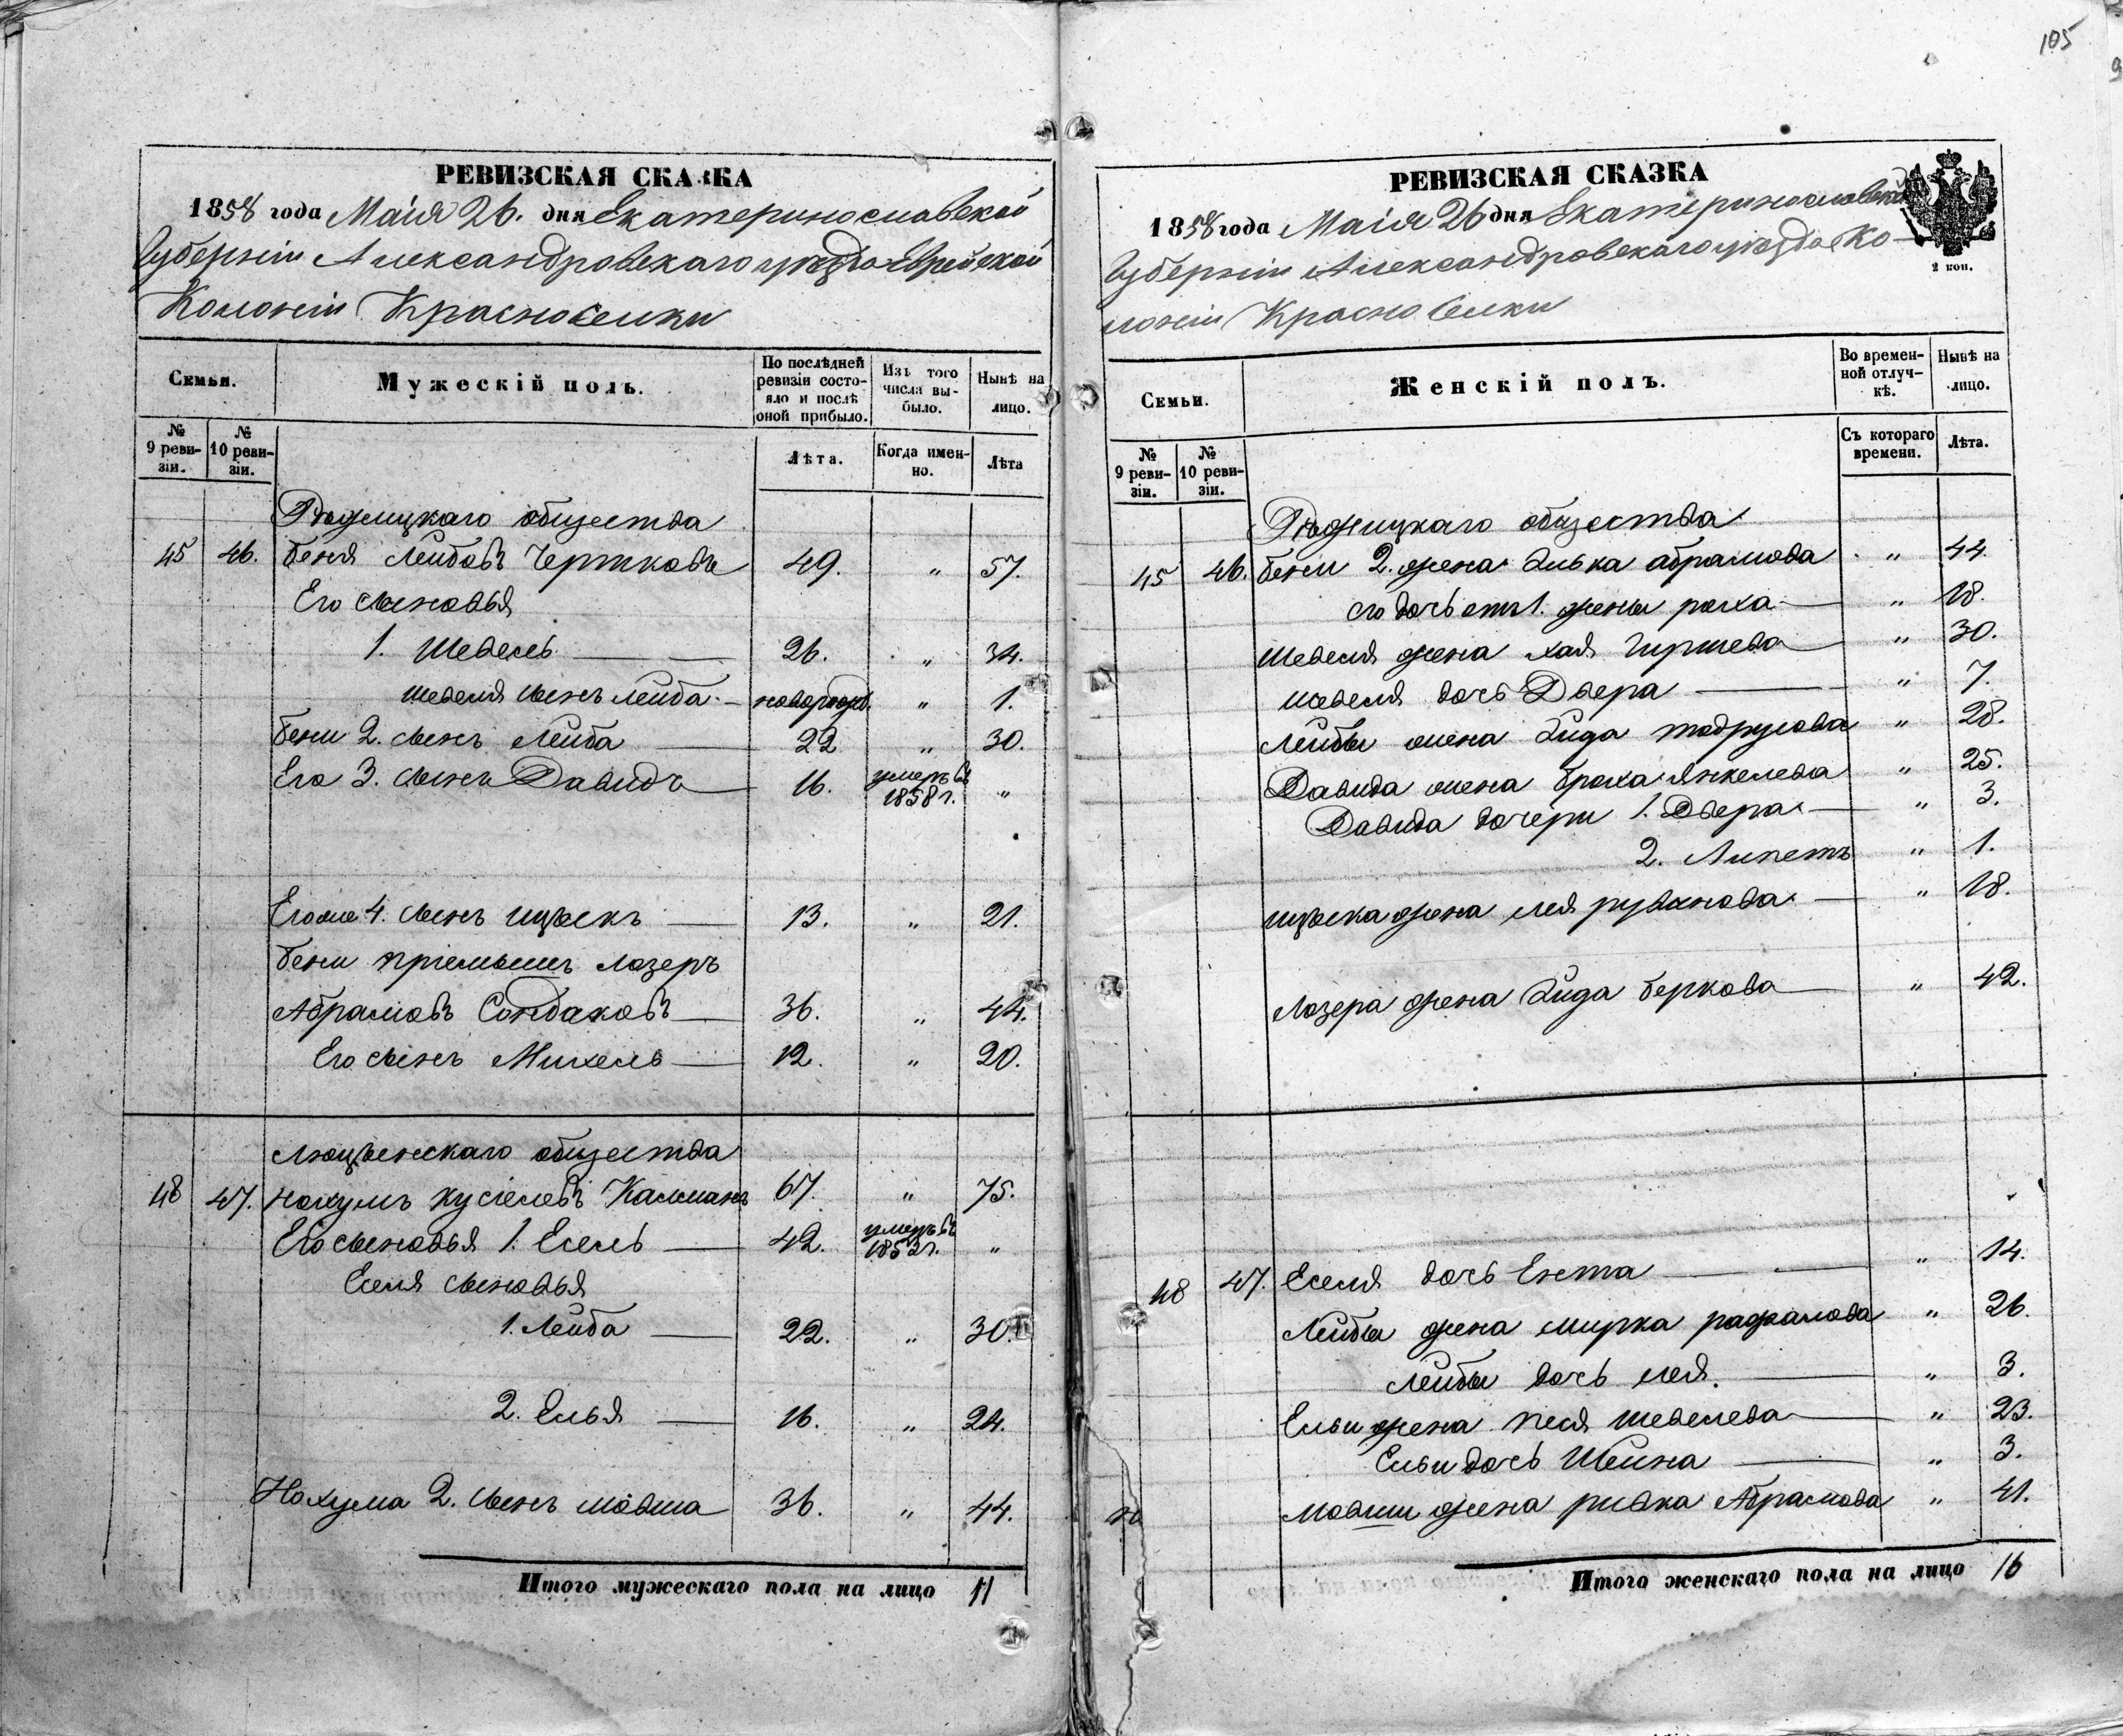 105
РЕВИЗСКАЯ СКАЗКА
1858 года Маія 26. дня Екатеринославской
Губерніи Александровскаго уѣзда Еврейской
Колоніи Красноселки
Семьи.
Мужескій полъ.
По послѣдней ревизіи состояло и послѣ оной прибыло.
Изъ того числа выбыло.
Нынѣ на лицо.
№ 9 ревизіи.
№ 10 ревизіи.
Лѣта.
Когда именно.
Лѣта
Рѣжицкаго общества
45 46. Беня Лейбовъ Чертковъ 49. " 57.
Его сыновья
1. Шевель 26. " 34.
Шевеля сынъ Лейба новорожд. " 1.
Бени 2. сынъ Лейба 22 " 30.
Его 3. сынъ Давидъ 16. умеръ въ 1858 г. "
Егоже 4. сынъ Ицѣкъ 13. " 21.
Бени пріемышъ Лозеръ
Абрамовъ 36. " 44.
Его сынъ Михель 12. " 20.
Люцынскаго общества
48 47. Нохумъ Кусіелевъ Кальманъ 67. " 75.
Его сыновья 1. Есель 42. умеръ въ 1853 г. "
Еселя сыновья
1. Лейба 22. " 30.
2. Елья 16. " 24.
Нохума 2. сынъ Мовша 36. " 44.
Итого мужескаго пола на лицо 11
РЕВИЗСКАЯ СКАЗКА
1858 года Маія 26 дня Екатеринославской
Губерніи Александровскаго уѣзда Ко-
лоніи Красноселки
2 коп.
Семьи.
Женскій полъ.
Во временной отлучкѣ.
Нынѣ на лицо.
№ 9 ревизіи.
№ 10 ревизіи.
Съ котораго времени.
Лѣта.
Рѣжицкаго общества
45 46. Бени 2. жена Элька Абрамова " 44.
его дочь отъ 1. жены Роха " 18.
Шевеля жена Хая Гиршева " 30.
Шевеля дочь Двера " 7.
Лейбы жена Зида Тодрусова " 28.
Давида жена Броха Янкелева " 25.
Давида дочери 1. Двера " 3.
2. Липетъ " 1.
Ицѣка жена Лея Рувинова " 18.
Лозера жена Зида Беркова " 42.
48 47. Еселя дочь Ента " 14.
Лейбы жена Мирка Рафалова " 26.
Лейбы дочь Лея. " 3.
Ельи жена Песя Шевелева " 23.
Ельи дочь Шейна " 3.
Мовши жена Ривка Абрамова " 41.
Итого женскаго пола на лицо 16